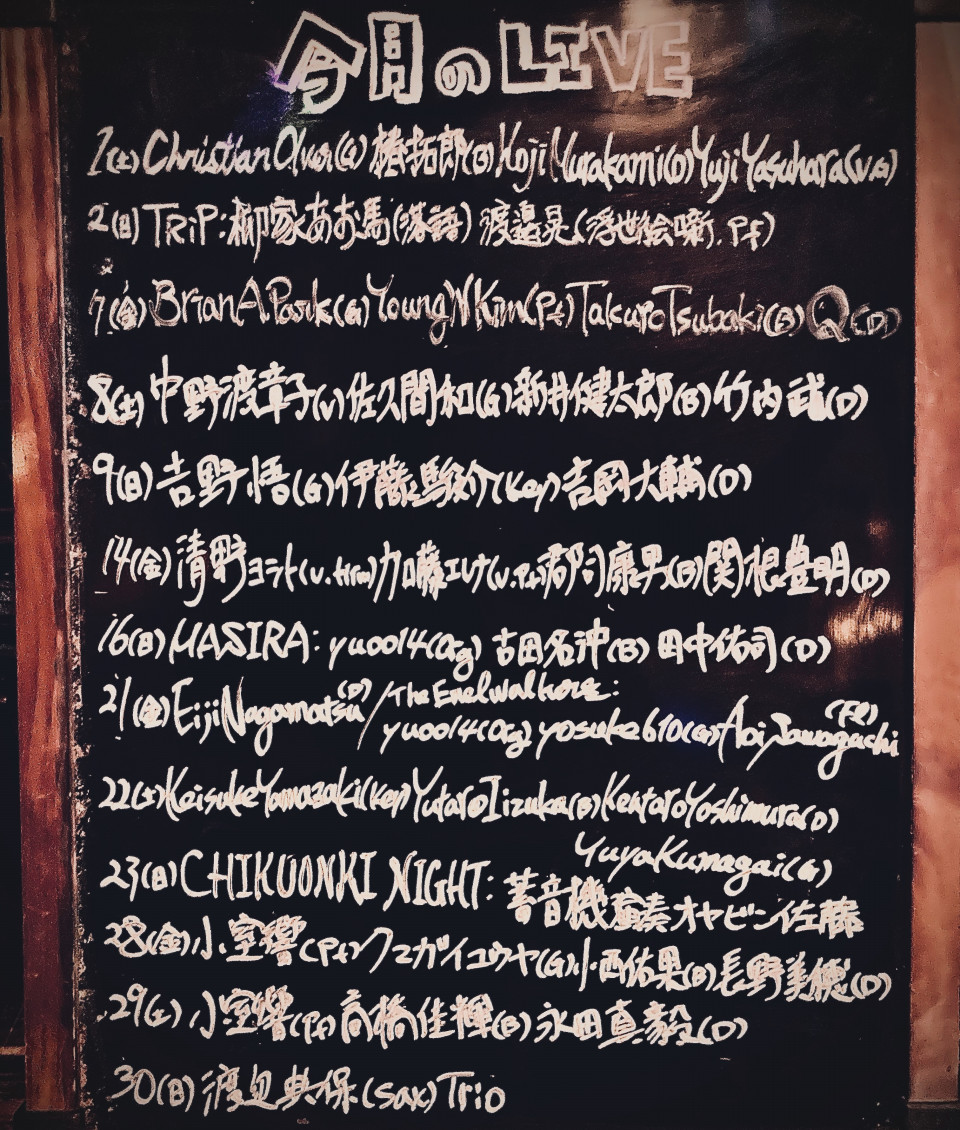 今月のLIVE
1(土) Christian Olver(G) 椿拓郎(B) Koji Murakami(D) Yuji Yasuhara(V.G)
2(日) TRiP:柳家あお馬(落語) 渡邊晃(浮世絵噺.Pf)
7(金) Brian A Park(G) Young W Kim(Pf) Takuro Tsubaki(B) Q(D)
8(土) 中野渡章子(V) 佐久間和(G) 新井健太郎(B) 竹内武(D)
9(日) 吉野悟(G) 伊藤駿介(Key) 吉岡大輔(D)
14(金) 清野ヨシト(V.Hrm) 加藤エレナ(V.Pf) 郡司康早(B) 関根豊明(D)
16(日) MASIRA: yuoo14(Org) 古田名沖(B) 田中佑司(D)
21(金) Eiji Nagamatsu(D) / The Eael walkers:
yuoo14(Org) yosuke610(G) Aoi Sawaguchi(Fl)
22(土) Keisuke Yamazaki(Key) Yutaro Iizuka(B) Kentaro Yoshimura(D)
Yuya Kumagai(G)
23(日) CHIKUONKI NIGHT: 蓄音機演奏 オヤビン佐藤
28(金) 小室響(Pf) クマガイユウヤ(G) 小西佑果(B) 長野美穂(D)
29(土) 小室響(Pf) 高橋佳輝(B) 永田真毅(D)
30(日) 渡辺典保(Sax) Trio